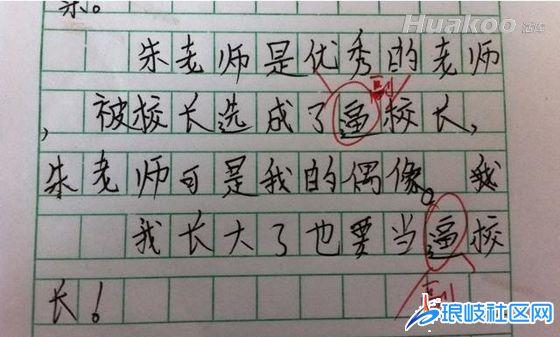 Huakoo
朱老师是优秀的老师
副
,被校长选成了逼校长,
朱老师可是我的偶像。我
我长大了也要当逼校
长!
副
琅岐社区网